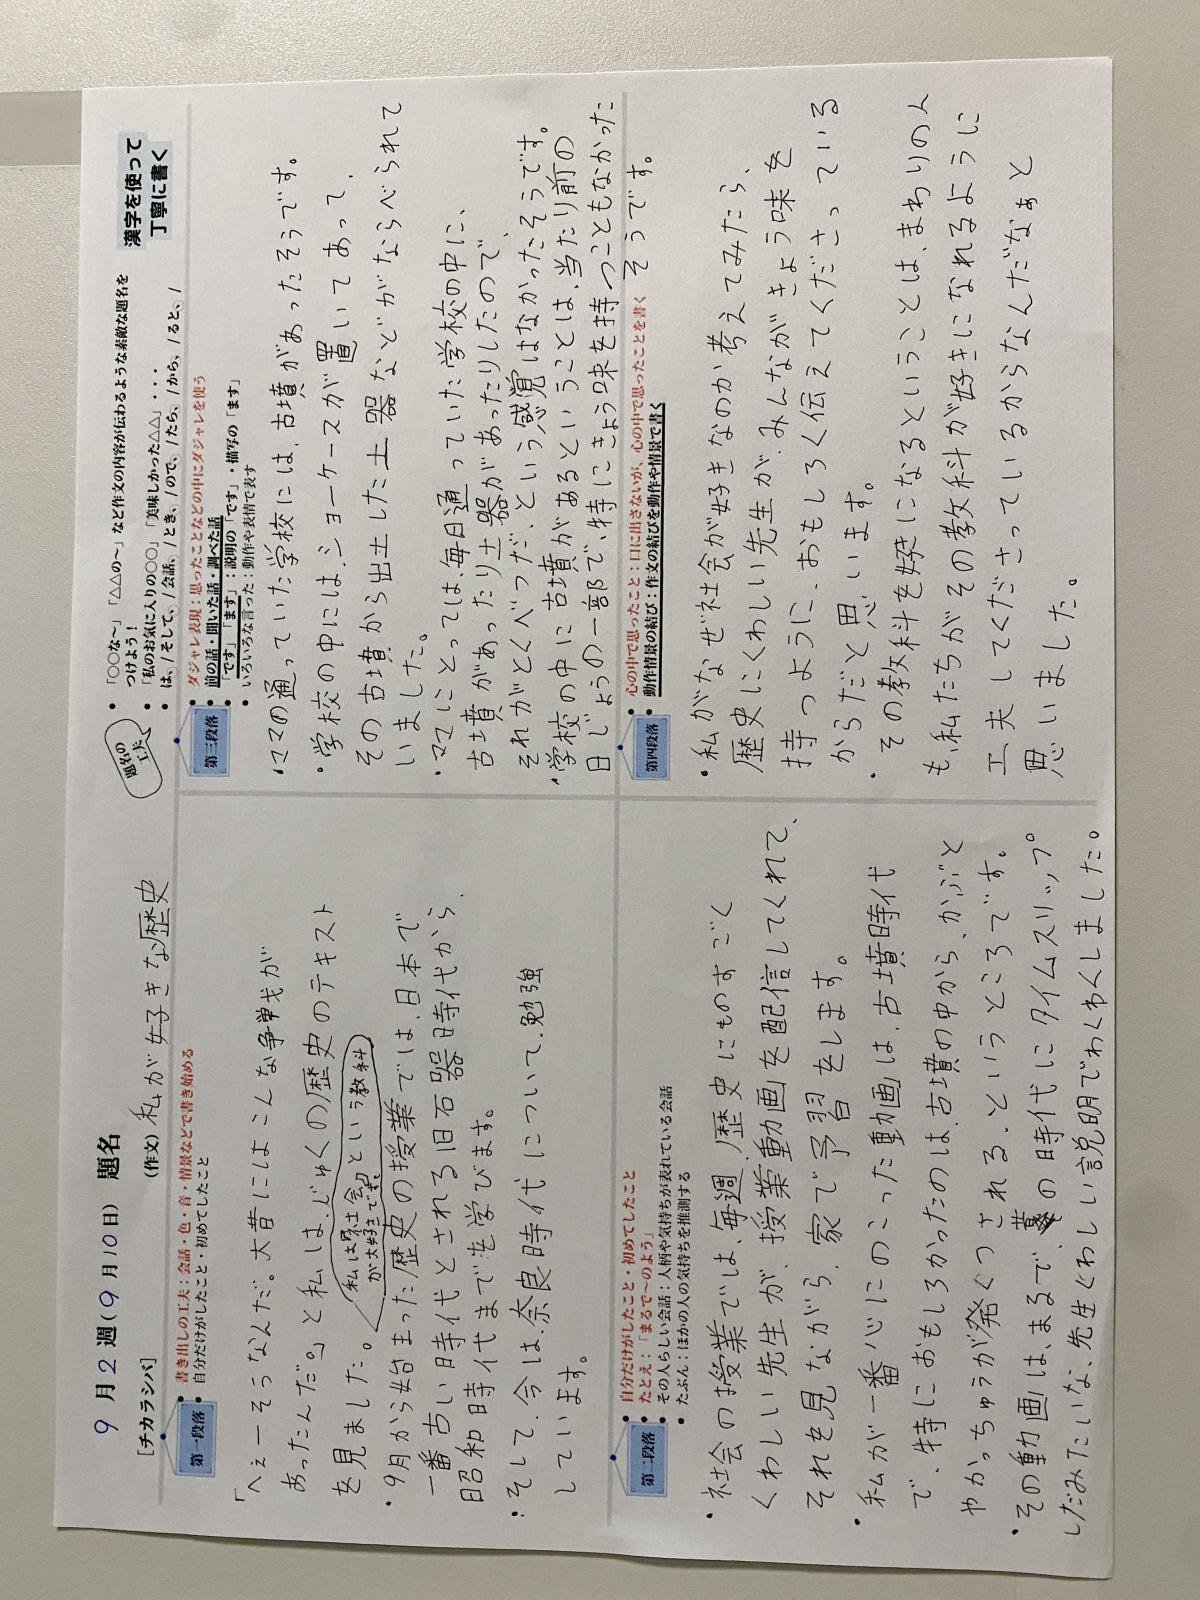 9月2週(9月10日) 題名
[チカラシバ] (作文) 私が好きな歴史
題名の工夫
• 「○○な〜」「△△の〜」など作文の内容が伝わるような素敵な題名を
つけよう!
• 「私のお気に入りの○○」「美味しかった△△」・・・
• は、/そして、/会話、/とき、/ので、/たら、/から、/ると、/
漢字を使って
丁寧に書く
第一段落
• 書き出しの工夫:会話・色・音・情景などで書き始める
• 自分だけがしたこと・初めてしたこと
「へぇーそうなんだ。大昔にはよこんな争戦が
あったんだ。」と私はじゅくの歴史のテキスト
を見ました。
私は社会という教科
が大好きです。
• 9月から始まった歴史の授業では、日本で
一番古い時代とされる旧石器時代から、
昭和時代までを学びます。
• そして、今は、奈良時代について、勉強
しています。
第二段落
• 自分だけがしたこと・初めてしたこと
• たとえ:「まるで〜のよう」
• その人らしい会話:人柄や気持ちが表れている会話
• たぶん:ほかの人の気持ちを推測する
• 社会の授業では、毎週、歴史にものすごく
くわしい先生が、授業動画を配信してくれて、
それを見ながら、家で予習をします。
• 私が一番心にのこった動画は、古墳時代
で、特におもしろかったのは、古墳の中から、かぶと
やかっちゅうが発くつされる、というところです。
• その動画は、まるで、その時代にタイムスリップ
したみたいな、先生くわしい説明でわくわくしました。
第三段落
• ダジャレ表現:思ったことなどの中にダジャレを使う
• 前の話・聞いた話・調べた話
• 「です」「ます」:説明の「です」・描写の「ます」
• いろいろな言った:動作や表情で表す
• ママの通っていた学校には、古墳があったそうです。
• 学校の中には、ショーケースが置いてあって、
その古墳から出土した土器などがならべられて
いました。
• ママにとっては、毎日通っていた学校の中に、
古墳があったり土器があったりしたので、
それがとくべつだ、という感覚はなかったそうです。
• 学校の中に古墳があるということは、当たり前の
日じょうの一部で、特にきょう味を持つこともなかった
そうです。
第四段落
• 心の中で思ったこと:口に出さないが、心の中で思ったことを書く
• 動作情景の結び:作文の結びを動作や情景で書く
• 私がなぜ社会が好きなのか考えてみたら、
歴史にくわしい先生が、みんながきょう味を
持つように、おもしろく伝えてくださっている
からだと思います。
• その教科を好きになるということは、まわりの人
も、私たちがその教科が好きになれるように
工夫してくださっているからなんだなぁと
思いました。